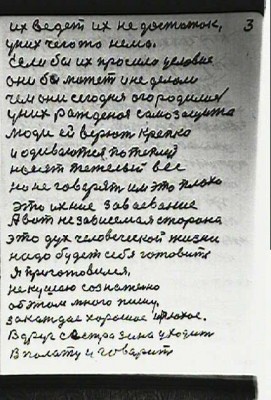 3
их ведет их не достаток,
у них чегото нема.
Если бы их просило условие
они бы может и не делали
чем они сегодня огородились
у них рождёная самозащита
люди ей верют крепко
и одиваются потеплей
носят тяжелый вес
но не говорят им это плохо
это ихние заваевание
А вот независемая сторона
это дух человеческой жизни
надо будет себя готовить
я приготовился,
не кушаю сознательно
об этом много пишу,
за каждае хорошие и плохое.
Вдруг сестра зена уходит
В палату и говарит